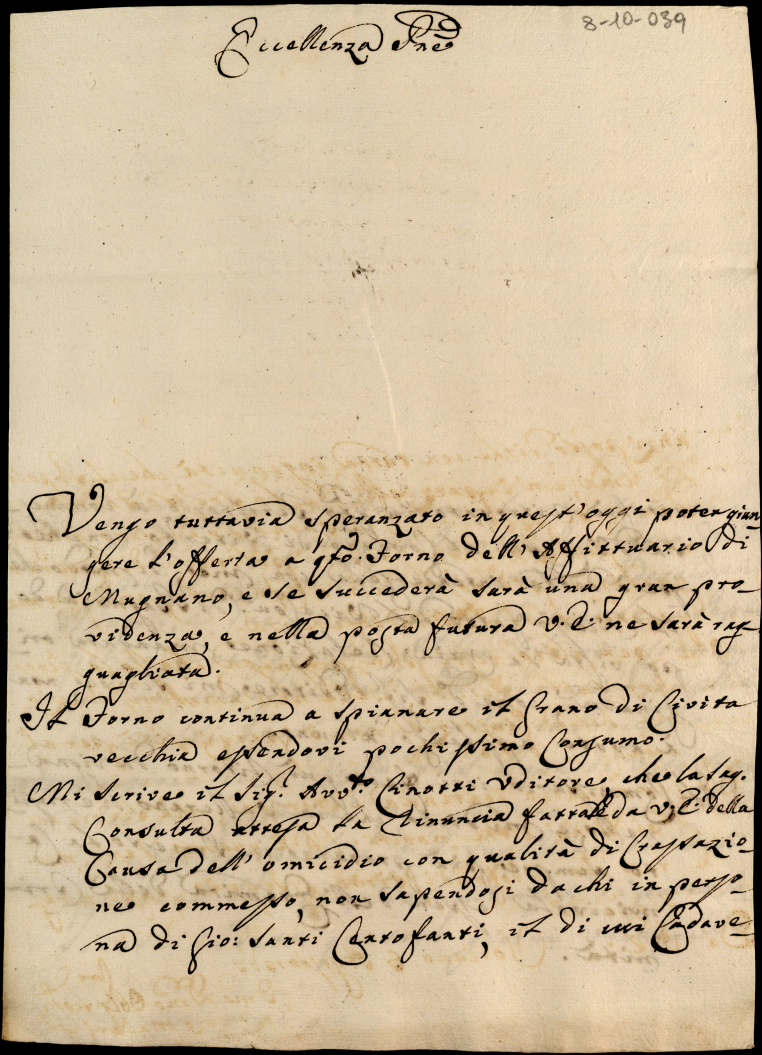 8-10-039
Eccellenza Pne
Vengo tuttavia speranzato in quest'oggi poter giun
gere l'offerta a qto. Forno dell'Affittuario di
Mugnano, e se succederà sarà una gran pro-
videnza, e nella posta futura V.E. ne sarà rag-
guagliata.
Il Forno continua a spianare il Grano di Civita
vecchia essendovi pochissimo Consumo.
Mi scrive il Sigr. Avvto Cinotti Uditore, che la Sag.
Consulta attesa la Rinuncia fattale da V.E. della
Causa dell'omicidio con qualità di Crassazio-
ne commesso, non sapendosi da chi in perso-
na di Gio: Santi Centofanti, il di cui Cadave-